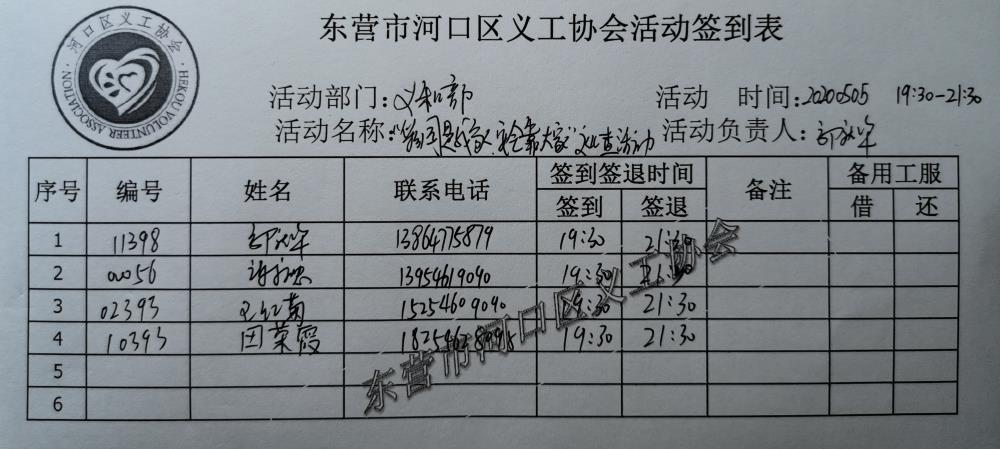 东营市河口区义工协会活动签到表
河口区义工协会
HEKOU VOLUNTEER ASSOCIATION
活动部门：义和部 活动 时间：20200505 19:30-21:30
活动名称： 活动负责人：
序号 编号 姓名 联系电话 签到签退时间 备注 备用工服
签到 签退 借 还
1 11398 13864775879 19:30 21:30
2 00056 13954619090 19:30 21:30
3 02393 王红菊 15254609090 19:30 21:30
4 10393 田荣霞 19:30 21:30
5
6
东营市河口区义工协会